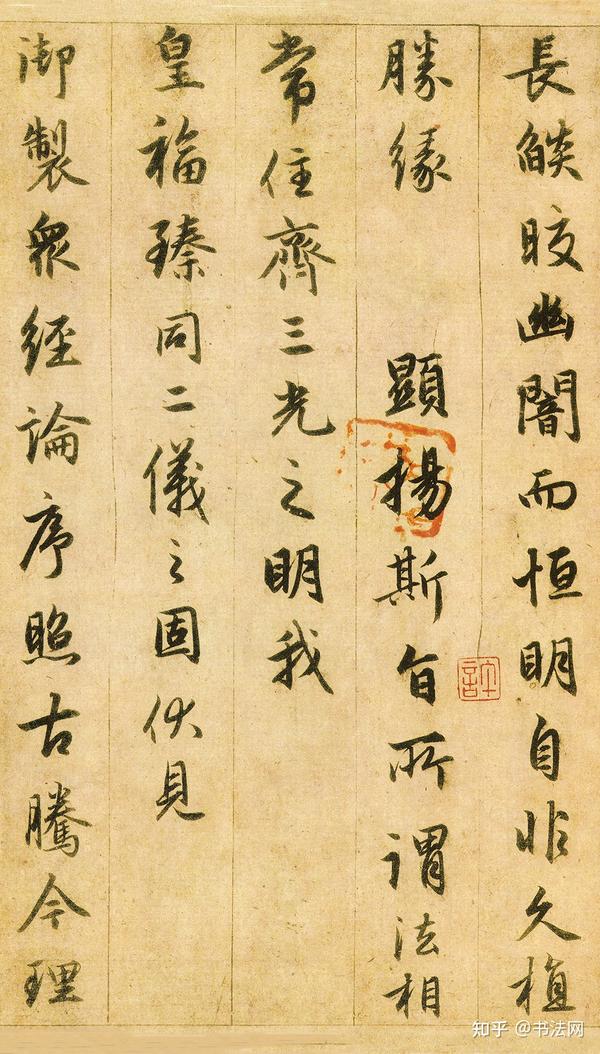 長燄皎幽闇而恒明自非久植
勝緣　　顯揚斯旨所謂法相
常住齊三光之明我
皇福臻同二儀之固伏見
御製衆經論序照古騰今理
知乎 @书法网